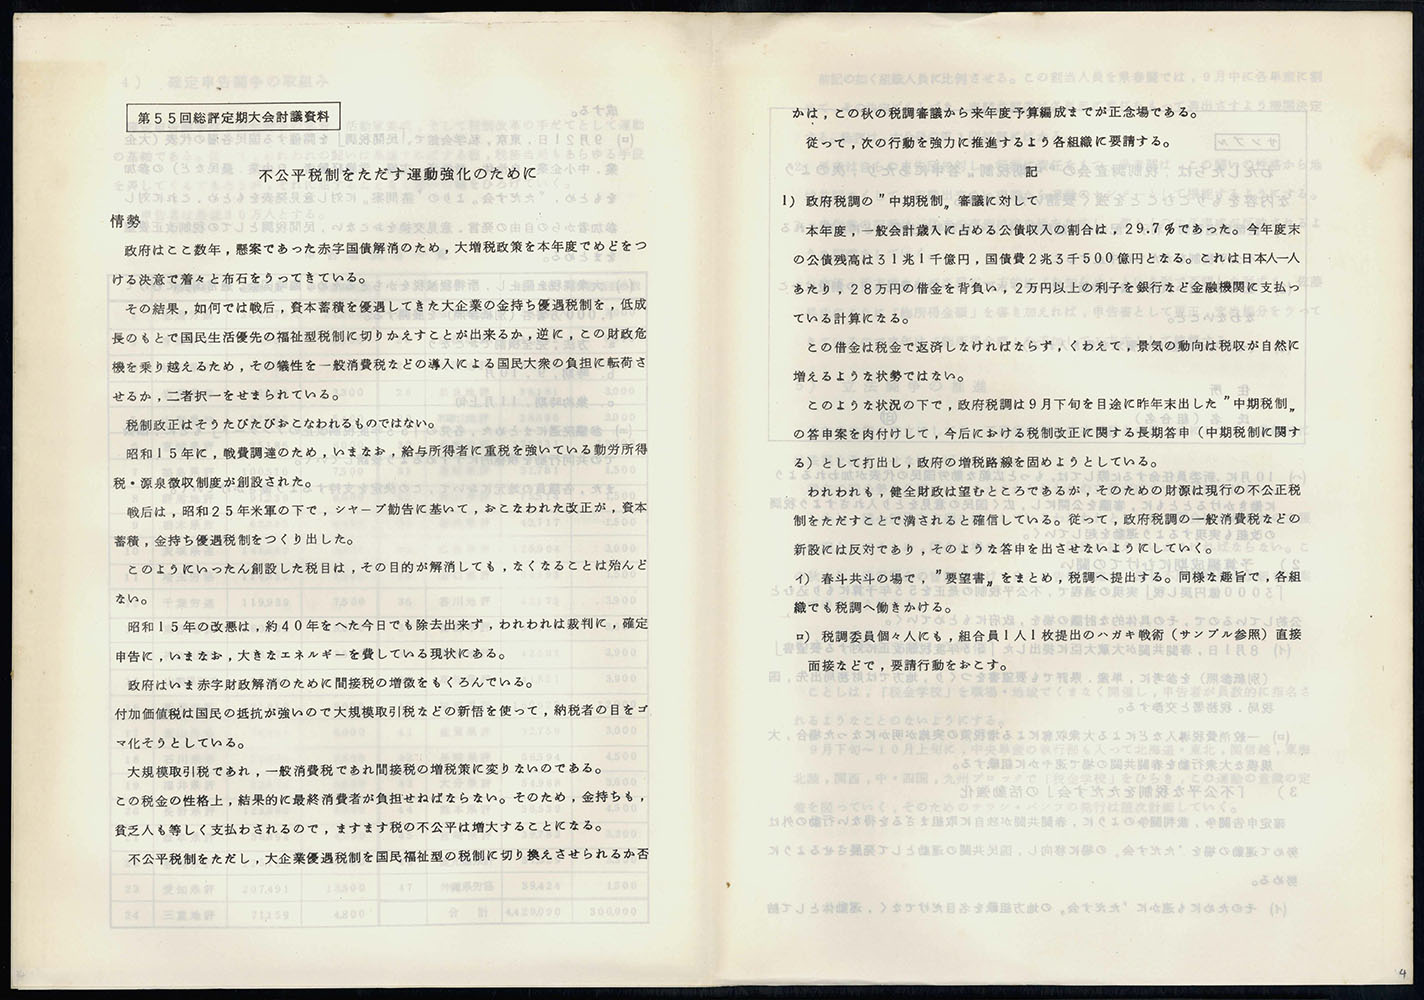 第55回総評定期大会討議資料
不公平税制をただす運動強化のために
情勢
政府はここ数年，懸案であった赤字国債解消のため，大増税政策を本年度でめどをつ
ける決意で着々と布石をうってきている。
その結果，如何では戦后，資本蓄積を優遇してきた大企業の金持ち優遇税制を，低成
長のもとで国民生活優先の福祉型税制に切りかえすことが出来るか，逆に，この財政危
機を乗り越えるため，その犠性を一般消費税などの導入による国民大衆の負担に転荷さ
せるか，二者択一をせまられている。
税制改正はそうたびたびおこなわれるものではない。
昭和15年に，戦費調達のため，いまなお，給与所得者に重税を強いている勤労所得
税・源泉徴収制度が創設された。
戦后は，昭和25年米軍の下で，シャープ勧告に基いて，おこなわれた改正が，資本
蓄積，金持ち優遇税制をつくり出した。
このようにいったん創設した税目は，その目的が解消しても，なくなることは殆んど
ない。
昭和15年の改悪は，約40年をへた今日でも除去出来ず，われわれは裁判に，確定
申告に，いまなお，大きなエネルギーを費している現状にある。
政府はいま赤字財政解消のために間接税の増徴をもくろんでいる。
付加価値税は国民の抵抗が強いので大規模取引税などの新悟を使って，納税者の目をゴ
マ化そうとしている。
大規模取引税であれ，一般消費税であれ間接税の増税策に変りないのである。
この税金の性格上，結果的に最終消費者が負担せねばならない。そのため，金持ちも，
貧乏人も等しく支払わされるので，ますます税の不公平は増大することになる。
不公平税制をただし，大企業優遇税制を国民福祉型の税制に切り換えさせられるか否
かは，この秋の税調審議から来年度予算編成までが正念場である。
従って，次の行動を強力に推進するよう各組織に要請する。
記
1) 政府税調の〝中期税制〟審議に対して
本年度，一般会計歳入に占める公債収入の割合は，29.7％であった。今年度末
の公債残高は31兆1千億円，国債費2兆3千500億円となる。これは日本人一人
あたり，28万円の借金を背負い，2万円以上の利子を銀行など金融機関に支払っ
ている計算になる。
この借金は税金で返済しなければならず，くわえて，景気の動向は税収が自然に
増えるような状勢ではない。
このような状況の下で，政府税調は9月下旬を目途に昨年末出した〝中期税制〟
の答申案を肉付けして，今后における税制改正に関する長期答申（中期税制に関す
る）として打出し，政府の増税路線を固めようとしている。
われわれも，健全財政は望むところであるが，そのための財源は現行の不公正税
制をただすことで満されると確信している。従って，政府税調の一般消費税などの
新設には反対であり，そのような答申を出させないようにしていく。
イ） 春斗共斗の場で，〝要望書〟をまとめ，税調へ提出する。同様な趣旨で，各組
織でも税調へ働きかける。
ロ） 税調委員個々人にも，組合員1人1枚提出のハガキ戦術（サンプル参照）直接
面接などで，要請行動をおこす。
4